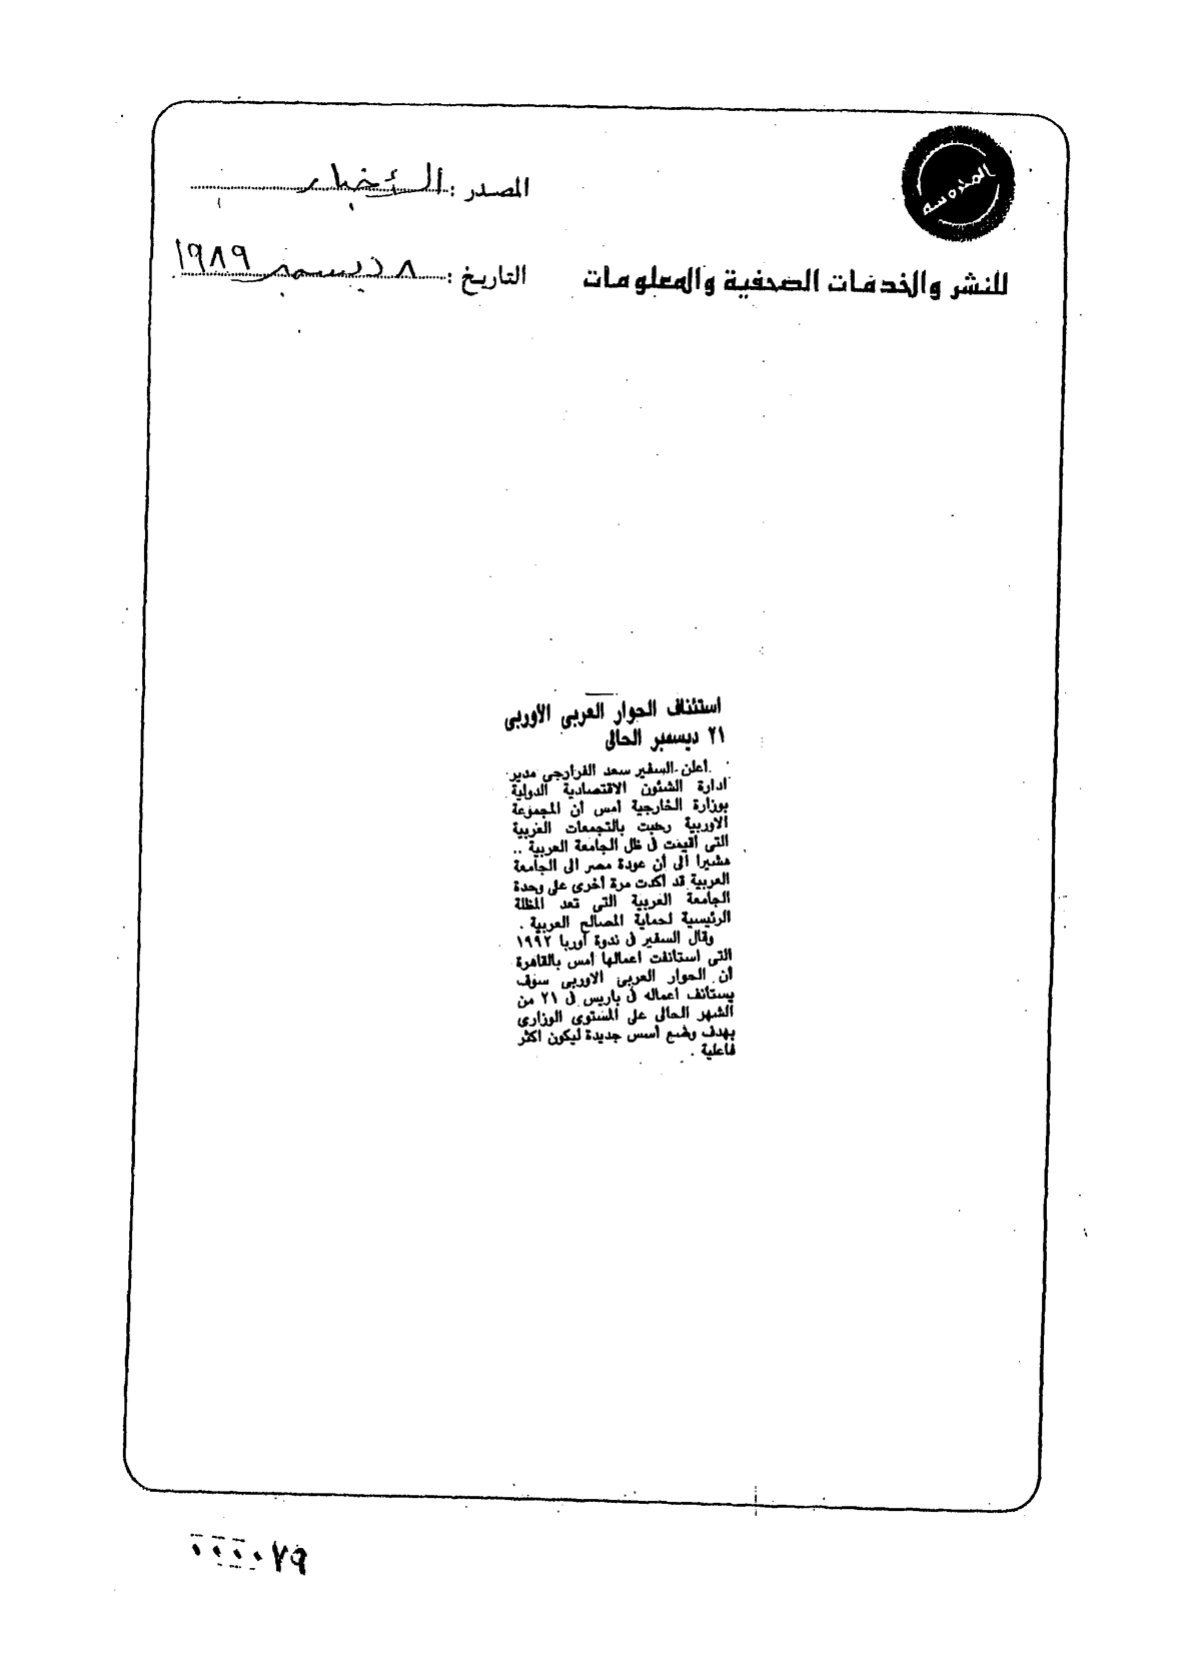 المحروسة
للنشر والخدمات الصحفية والمعلومات
المصدر : الأخبار
التاريخ : ٨ ديسمبر ١٩٨٩
استئناف الحوار العربى الأوربى
٢١ ديسمبر الحالى
أعلن السفير سعد الفرارجى مدير
ادارة الشئون الاقتصادية الدولية
بوزارة الخارجية أمس أن المجموعة
الأوربية رحبت بالتجمعات العربية
التى أقيمت فى ظل الجامعة العربية ..
مشيرا الى أن عودة مصر الى الجامعة
العربية قد أكدت مرة أخرى على وحدة
الجامعة العربية التى تعد المظلة
الرئيسية لحماية المصالح العربية .
وقال السفير فى ندوة أوربا ١٩٩٢
التى استأنفت أعمالها أمس بالقاهرة
أن الحوار العربى الأوربى سوف
يستأنف أعماله فى باريس فى ٢١ من
الشهر الحالى على المستوى الوزارى
بهدف وضع أسس جديدة ليكون أكثر
فاعلية .
٠٠٠٠٧٩